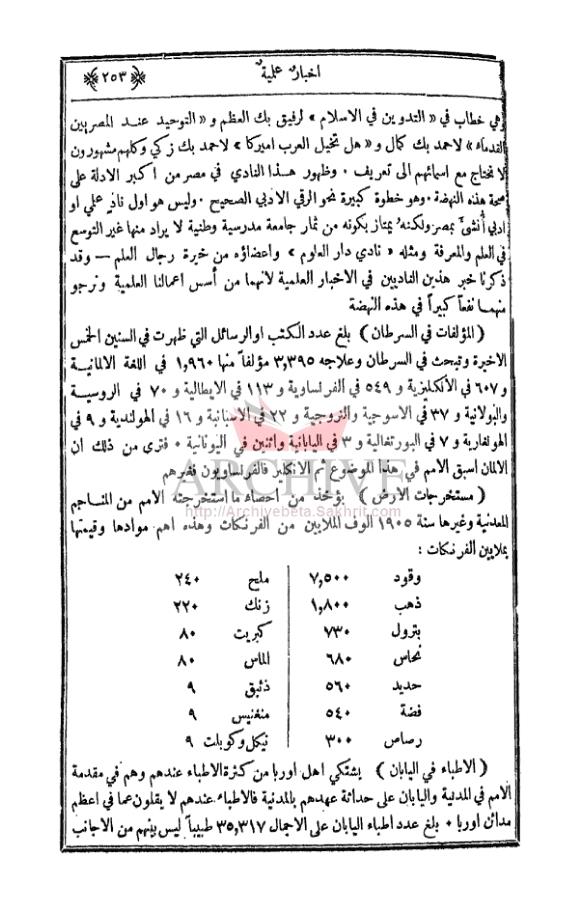 اخبارٌ علميةٌ
﴿٢٥٣﴾
وهي خطاب في « التدوين في الاسلام » لرفيق بك العظم و « التوحيد عند المصريين
القدماء » لاحمد بك كمال و « هل تخيل العرب اميركا » لاحمد بك زكي وكلهم مشهورون
لا نحتاج مع اسمائهم الى تعريف ٠ وظهور هذا النادي في مصر من اكبر الادلة على
صحة هذه النهضة ٠ وهو خطوة كبيرة نحو الرقي الادبي الصحيح ٠ وليس هو اول نادٍ علمي او
ادبي أُنشئَ بمصر ولكنهُ يمتاز بكونه من ثمار جامعة مدرسية وطنية لا يراد منها غير التوسع
في العلم والمعرفة ومثله « نادي دار العلوم » واعضاؤه من خيرة رجال العلم — وقد
ذكرنا خبر هذين الناديين في الاخبار العلمية لانهما من أسس اعمالنا العلمية ونرجو
منهما نفعاً كبيراً في هذه النهضة
( المؤلفات في السرطان ) بلغ عدد الكتب او الرسائل التي ظهرت في السنين الخمس
الاخيرة وتبحث في السرطان وعلاجه ٣,٣٩٥ مؤلفاً منها ١,٩٦٠ في اللغة الالمانية
و ٦٠٧ في الانكليزية و ٥٤٩ في الفرنساوية و ١١٣ في الايطالية و ٧٠ في الروسية
والبولانية و ٣٧ في الاسوجية والنروجية و ٢٢ في الاسبانية و ١٦ في الهولندية و ٩ في
الهونغارية و ٧ في البورتغالية و ٣ في اليابانية واثنين في اليونانية ٠ فترى من ذلك ان
الالمان اسبق الأمم في هذا الموضوع ثم الانكليز فالفرنساويون فغيرهم
ARCHIVE
http://Archivebeta.Sakhrit.com
( مستخرجات الارض ) يؤخذ من احصاء ما استخرجته الامم من المناجم
المعدنية وغيرها سنة ١٩٠٥ الوف الملايين من الفرنكات وهذه اهم موادها وقيمتها
بملايين الفرنكات :
وقود ٧,٥٠٠ ملح ٢٤٠
ذهب ١,٨٠٠ زنك ٢٢٠
بترول ٧٣٠ كبريت ٨٠
نحاس ٦٨٠ الماس ٨٠
حديد ٥٦٠ ذئبق ٩
فضة ٥٤٠ منغنيس ٩
رصاص ٣٠٠ نيكل وكوبلت ٩
( الاطباء في اليابان ) يشتكي اهل اوربا من كثرة الاطباء عندهم وهم في مقدمة
الامم في المدنية واليابان على حداثة عهدهم بالمدنية فالاطباء عندهم لا يقلون عما في اعظم
مدائن اوربا ٠ بلغ عدد اطباء اليابان على الاجمال ٣٥,٣١٧ طبيباً ليس بينهم من الاجانب